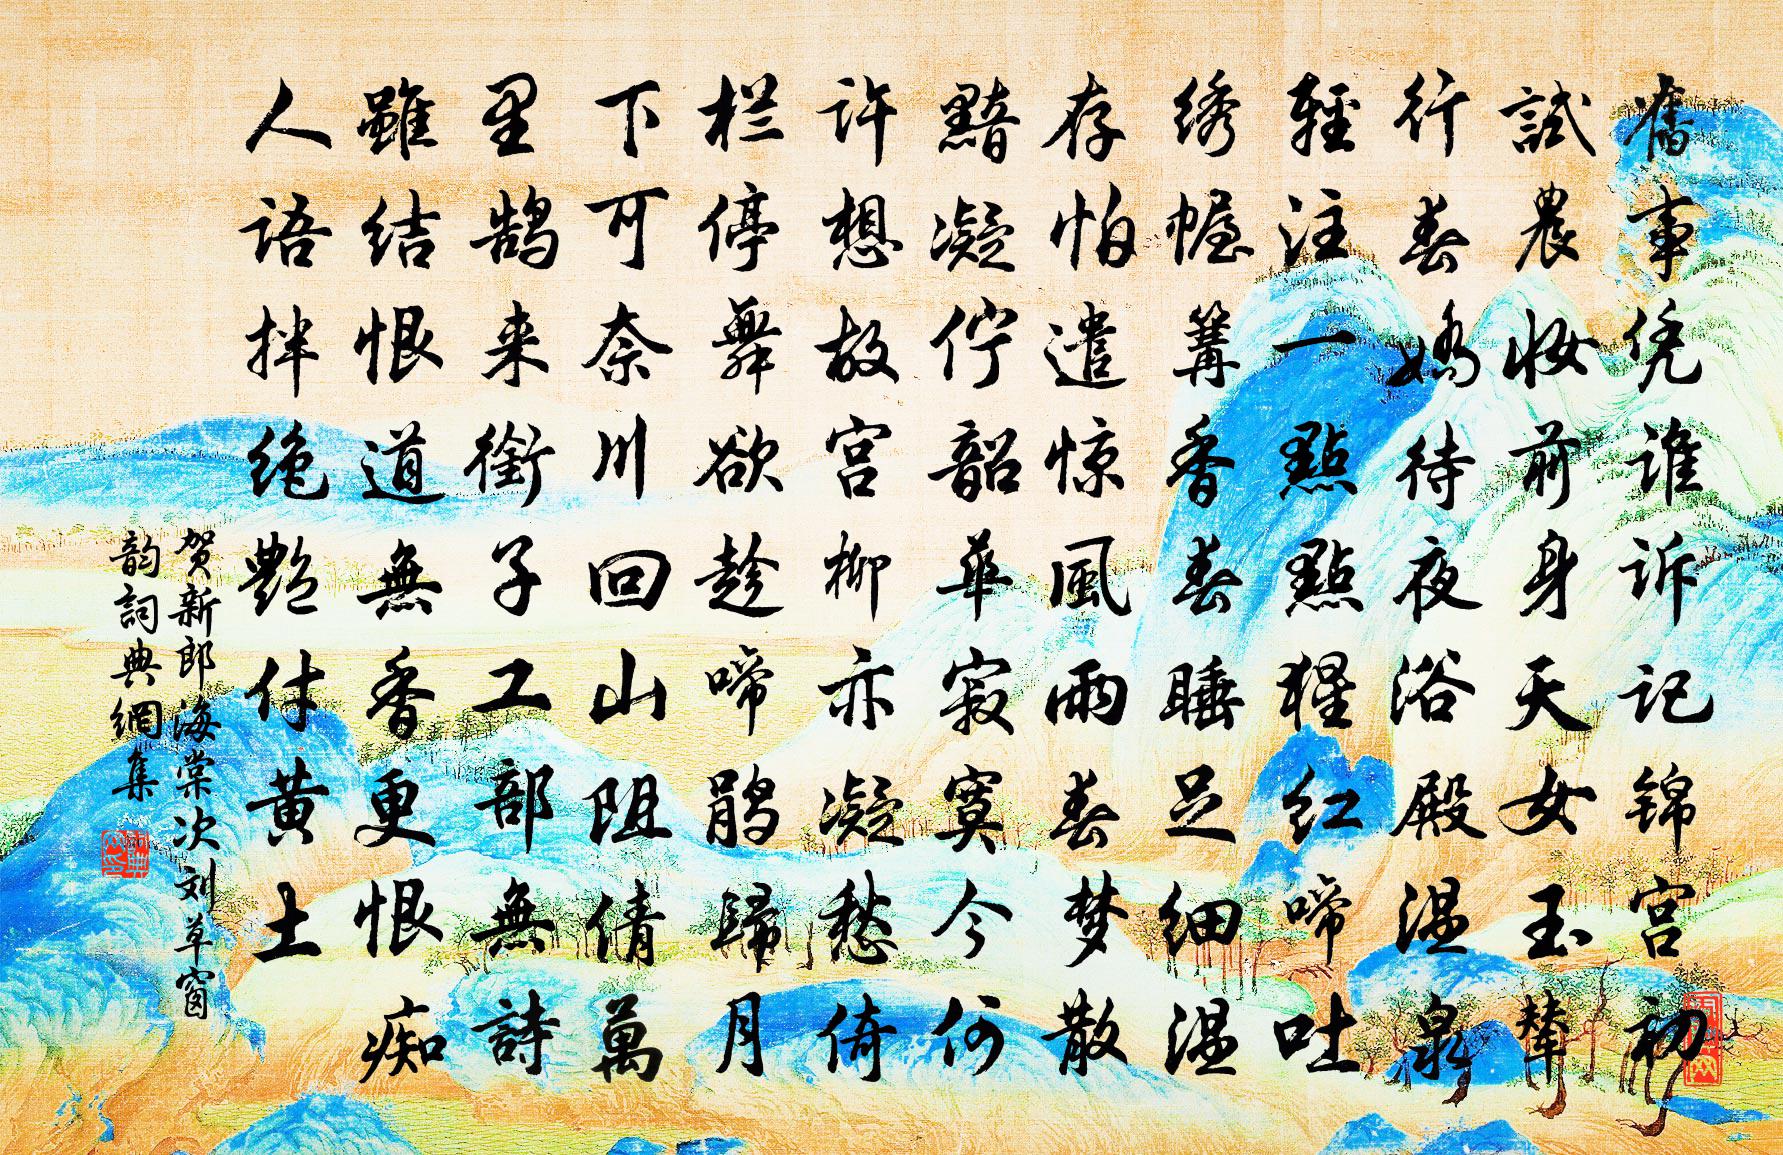 舊事凭谁诉记锦宫初
試農妆前身天女玉辇
行春娇待夜浴殿温泉
輕注一點點猩红啼吐
绣幄篝香春睡足细温
存怕遣惊風雨春梦散
黯凝伫韶华寂寞今何
许想故宫柳亦凝愁倚
栏停舞欲趁啼鹃歸月
下可奈川回山阻倩萬
里鹄来衔子工部無詩
雖结恨道無香更恨痴
人语拌绝艷付黄土
贺新郎海棠次刘草窗
韵詞典網集